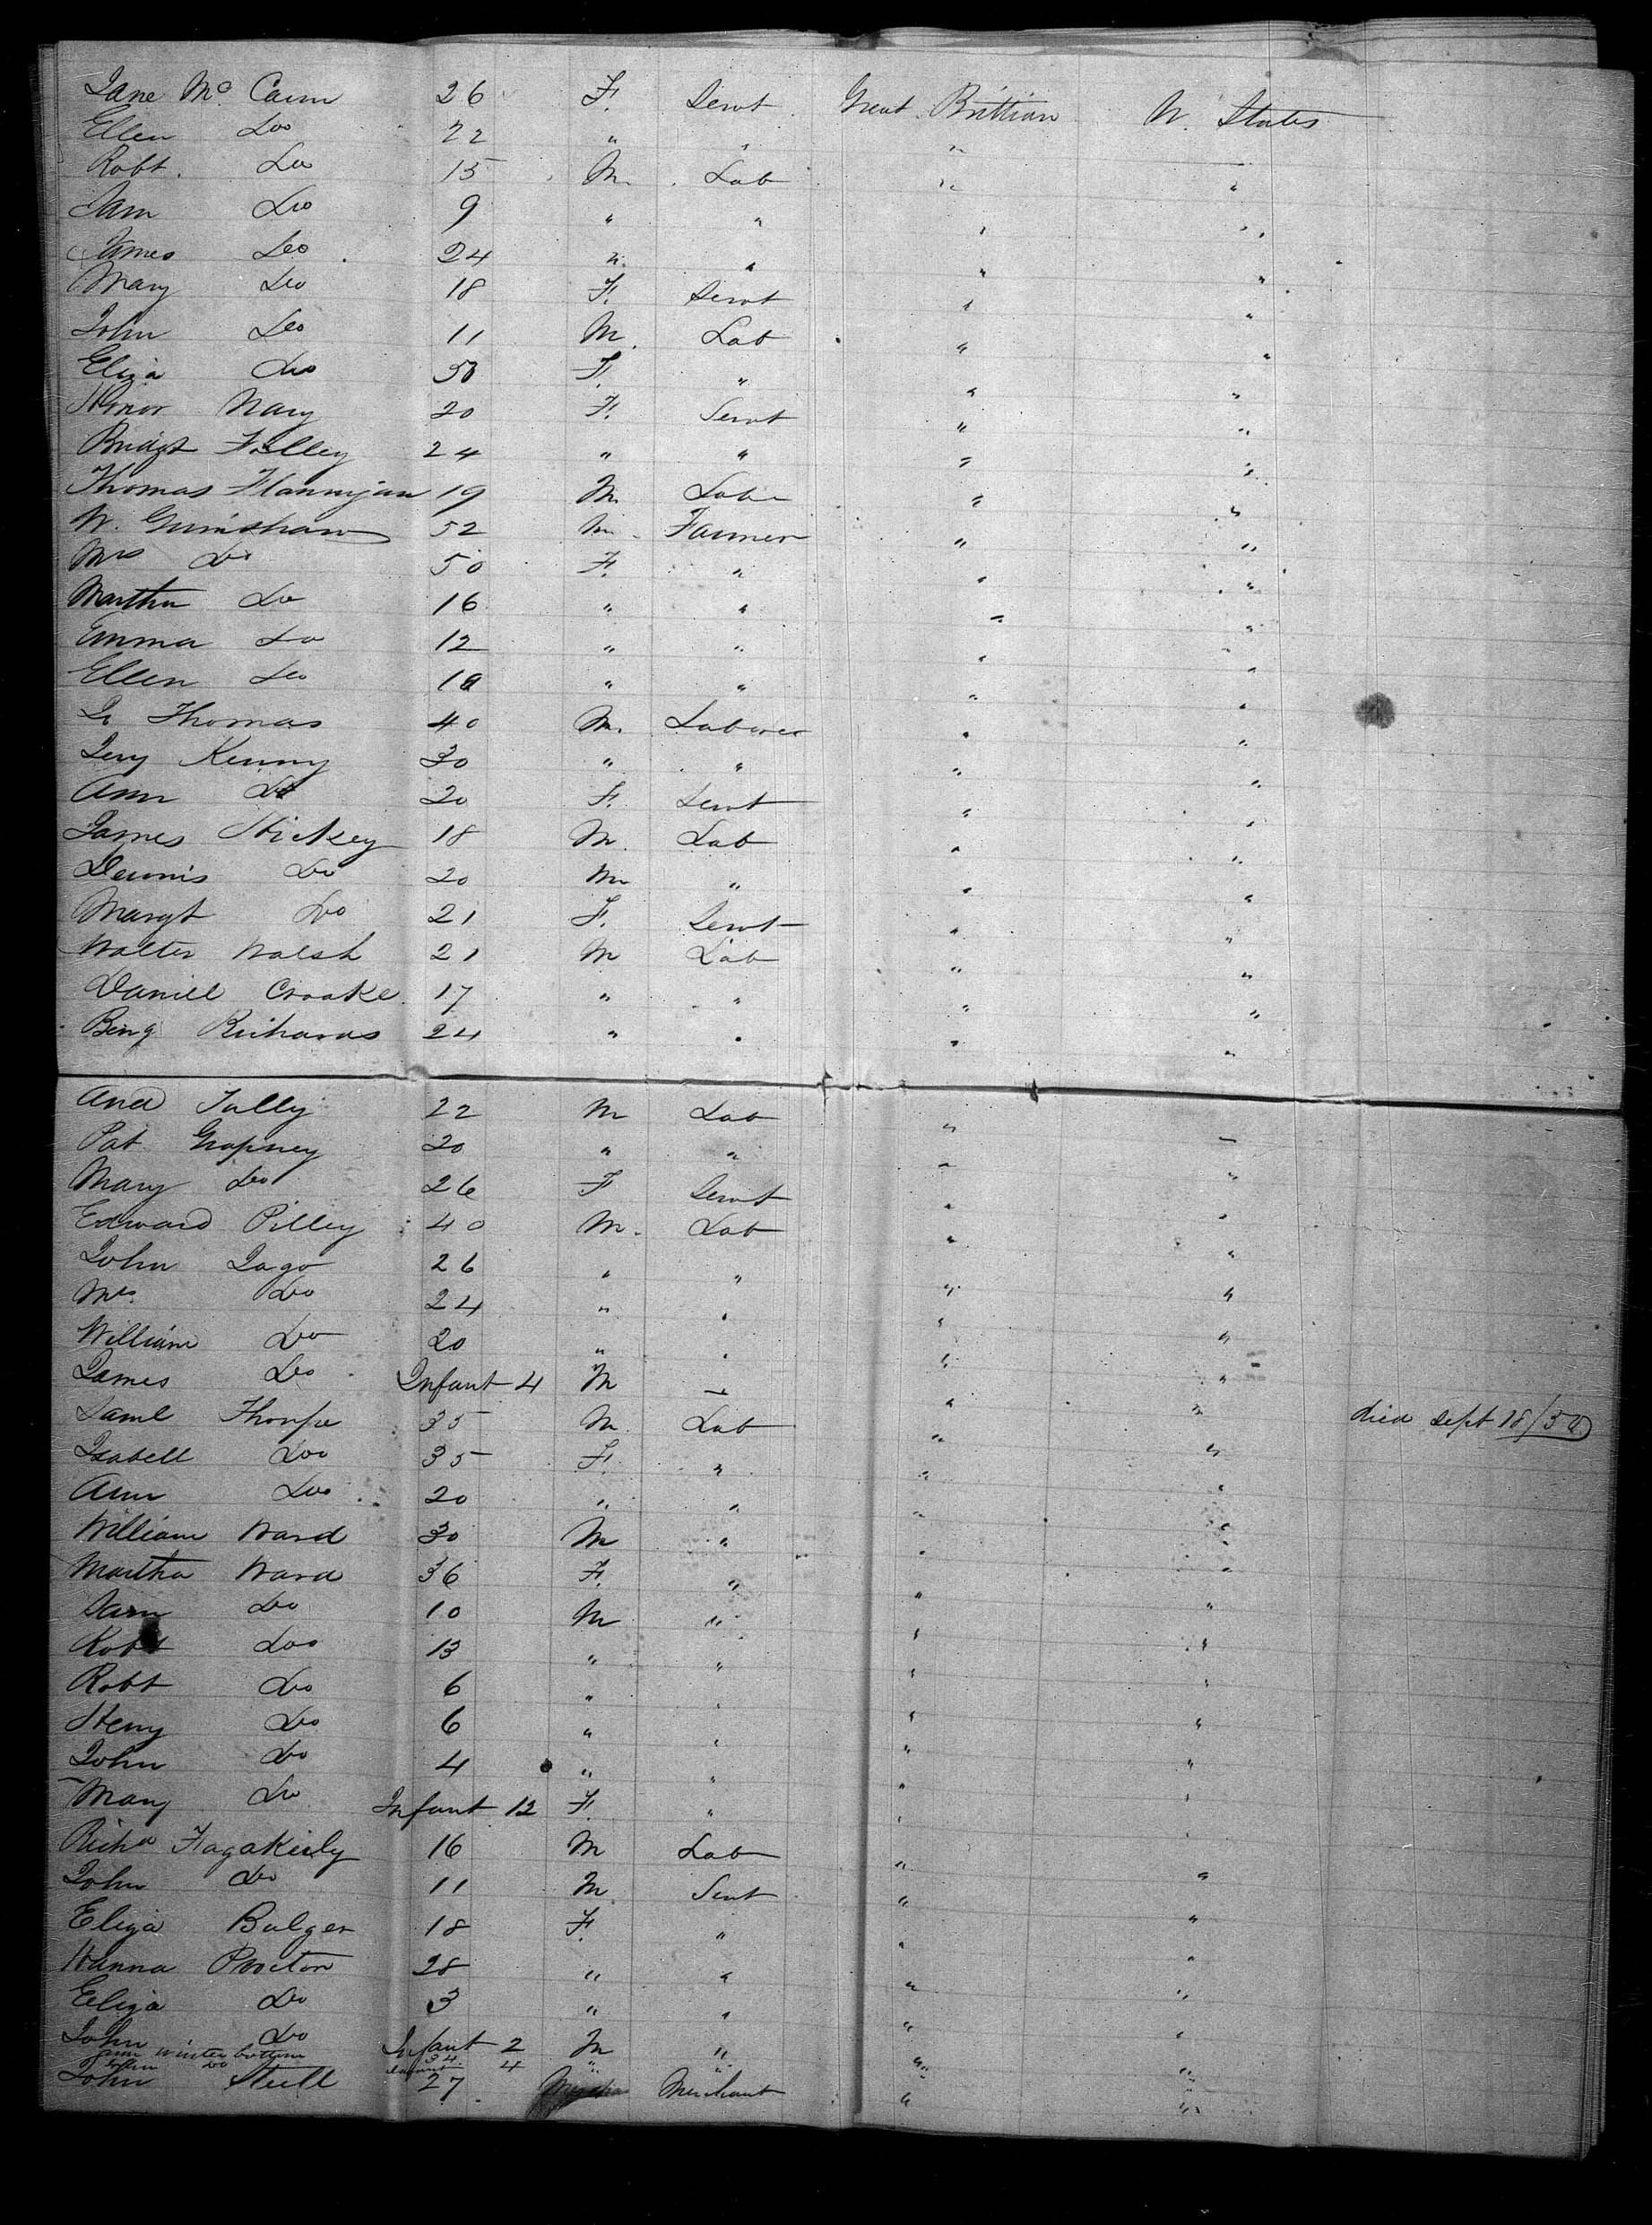 Jane Mc. Cann 26 F. Servt Great Brittian U. States
Ellen Do 22 " " " "
Robt. Do 15 M. Lab " "
Sam Do 9 " " " "
James Do 24 " " " "
Mary Do 18 F. Servt " "
John Do 11 M. Lab " "
Eliza Do 50 F. " " "
Honor Nary 20 F. Servt " "
Bridgt Folley 24 " " " "
Thomas Flannigan 19 M. Labr " "
W. Grimshaw 52 M. Farmer " "
Mrs Do 50 F. " " "
Martha Do 16 " " " "
Emma Do 12 " " " "
Ellen Do 10 " " " "
Thomas 40 M. Laborer " "
Kenny 30 " " " "
Ann Do 20 F. Servt " "
James Hickey 18 M. Lab " "
Dennis Do 20 M " " "
Margt Do 21 F. Servt " "
Walter Walsh 21 M Lab " "
Daniell Croake 17 " " " "
Benj Richards 24 " " " "
And Tully 22 M Lab " "
Pat Grapney 20 " " " "
Mary Do 26 F Servt " "
Edward Pilley 40 M. Lab " "
John Jago 26 " " " "
Mrs. Do 24 " " " "
William Do 20 " " " "
James Do Infant 4 M " " "
Saml Thorpe 35 M. Lab " " died Sept 18/50
Isabell Do 35 F. " " "
Ann Do 20 " " " "
William Ward 30 M " " "
Martha Ward 36 F. " " "
Sam Do 10 M " " "
Robt Do 13 " " " "
Robt Do 6 " " " "
Henry Do 6 " " " "
John Do 4 " " " "
Mary Do Infant 12 F. " " "
Richd Fagakerly 16 M Lab " "
John Do 11 M. Servt " "
Eliza Bulger 18 F. " " "
Hanna Procton 28 " " " "
Eliza Do 3 " " " "
John Do Infant 2 M " " "
Ann Winterbottom 34
John Do Infant 4 " " " "
John Steell 27 Merchant " "